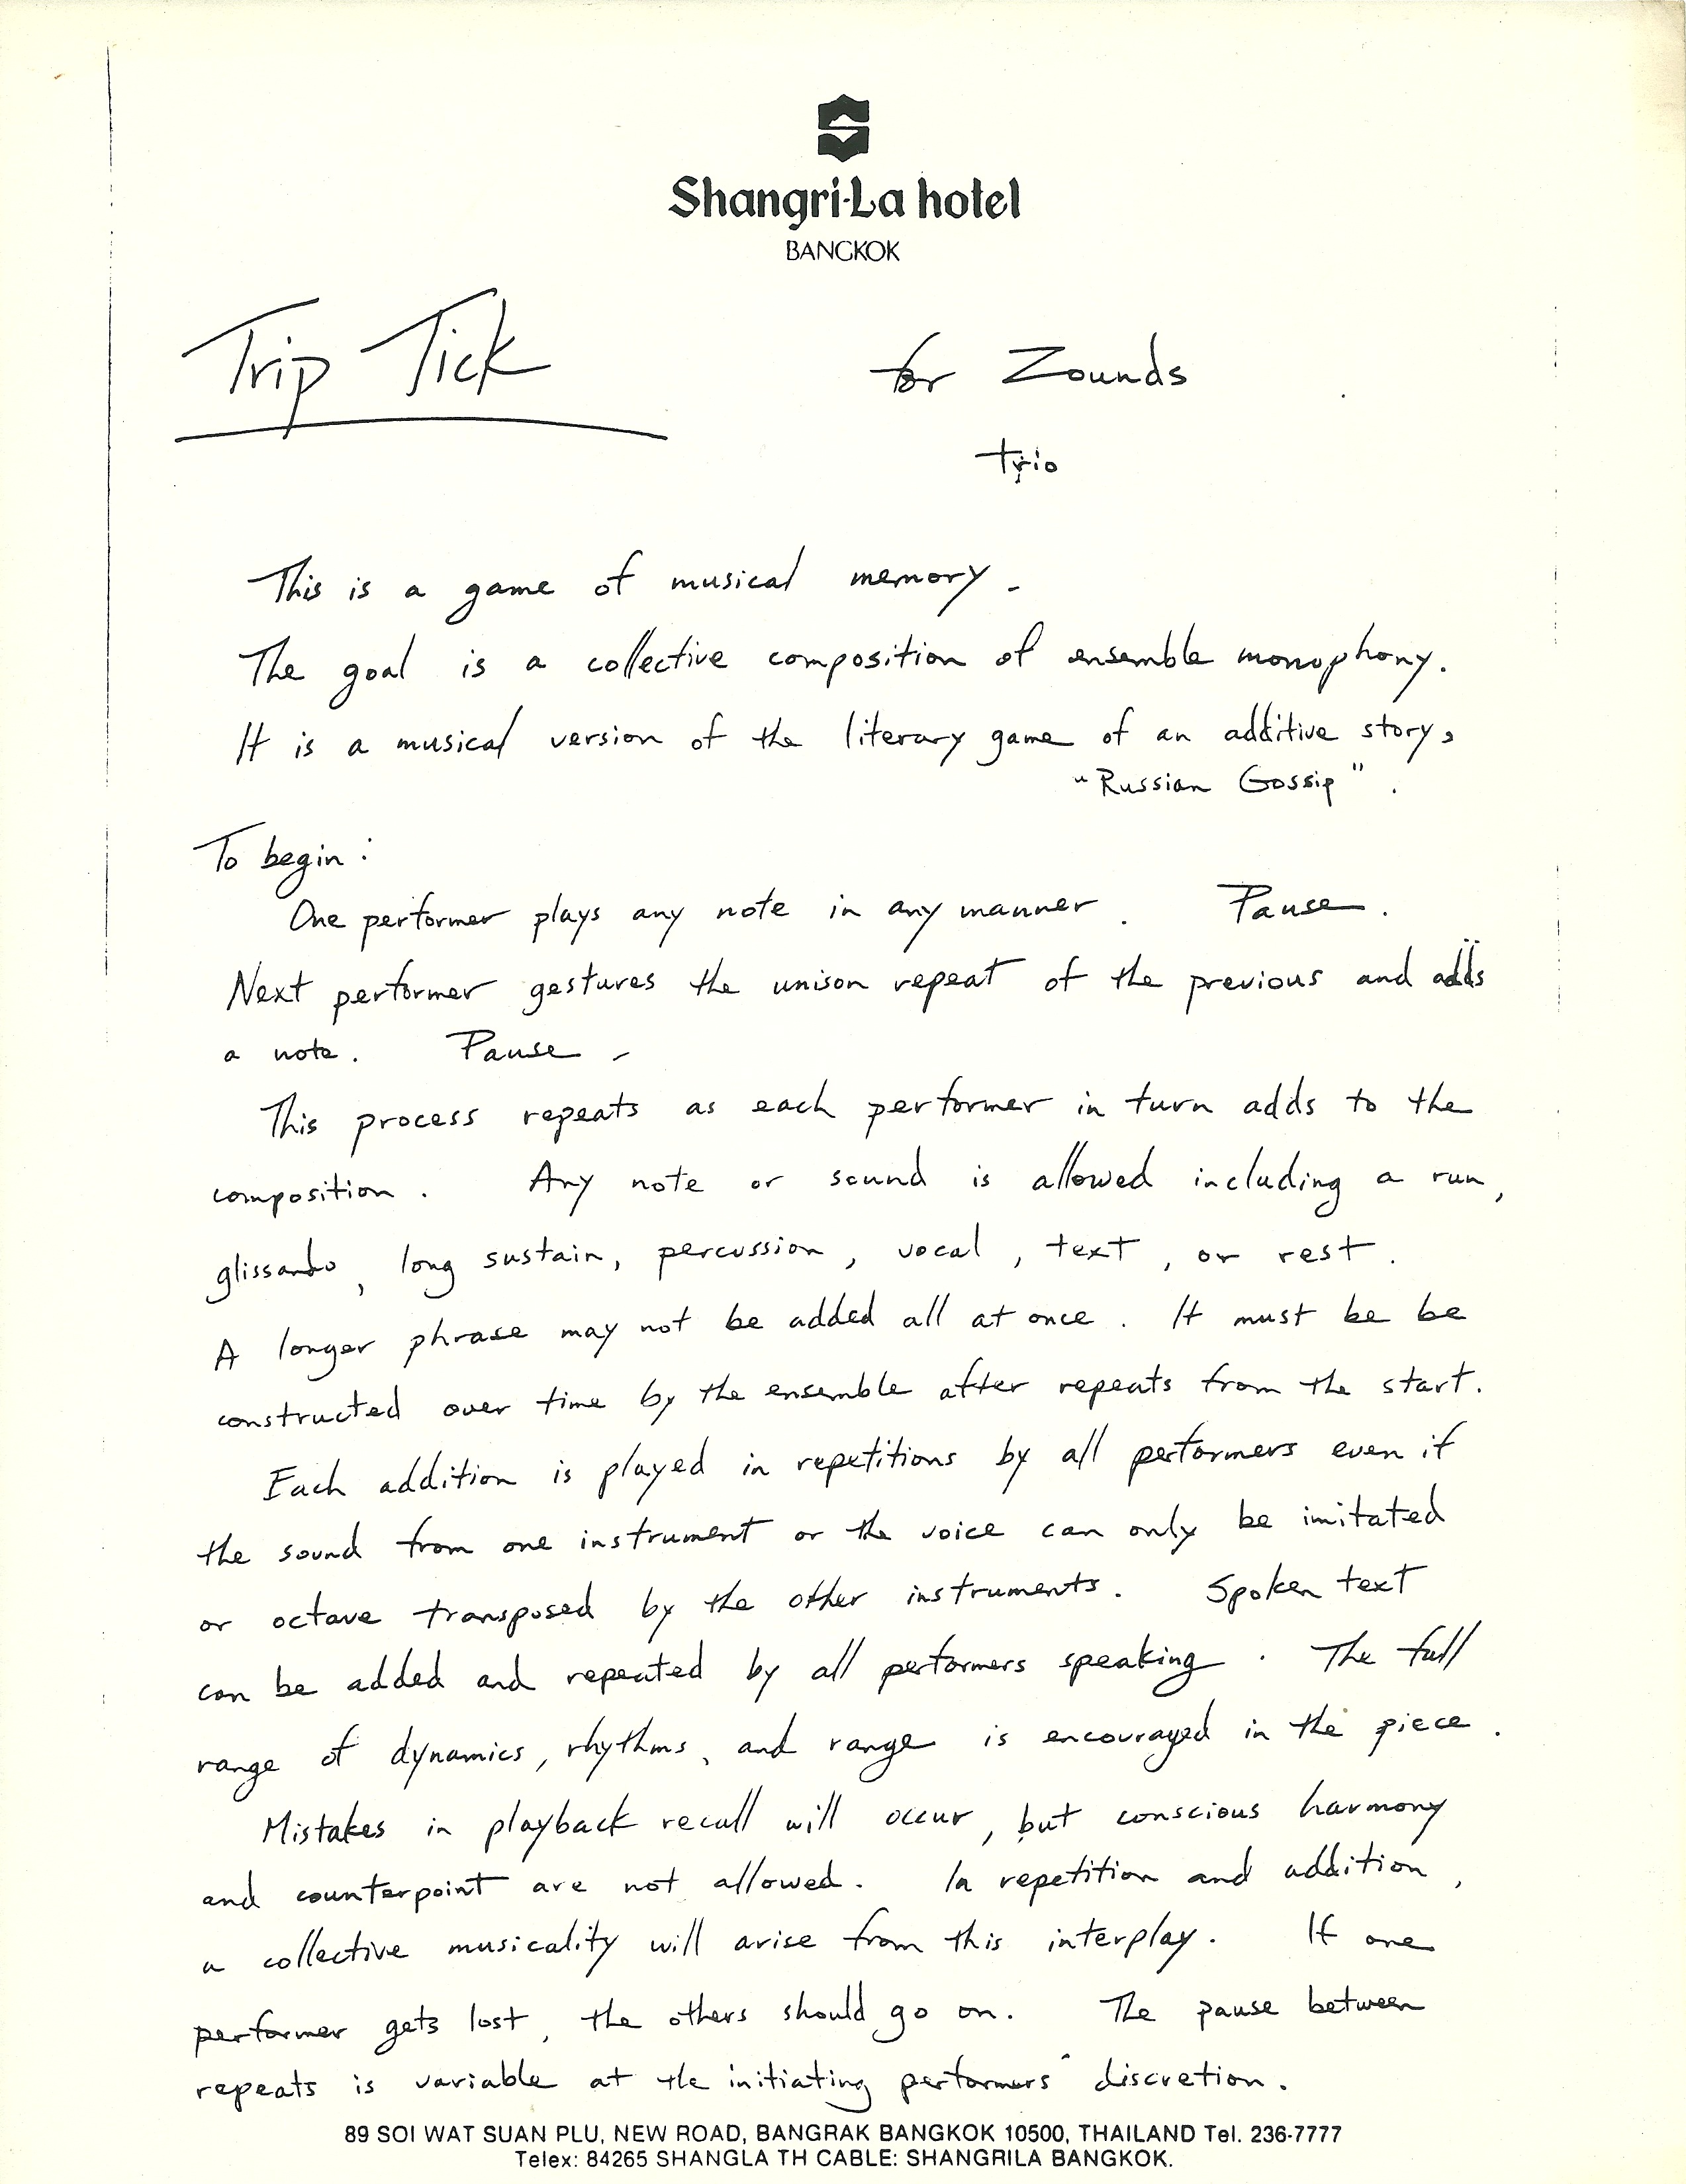 Shangri-La hotel
BANGKOK
Trip Tick for Zounds
trio
This is a game of musical memory.
The goal is a collective composition of ensemble monophony.
It is a musical version of the literary game of an additive story,
"Russian Gossip".
To begin:
One performer plays any note in any manner. Pause.
Next performer gestures the unison repeat of the previous and adds
a note. Pause.
This process repeats as each performer in turn adds to the
composition. Any note or sound is allowed including a run,
glissando, long sustain, percussion, vocal, text, or rest.
A longer phrase may not be added all at once. It must be be
constructed over time by the ensemble after repeats from the start.
Each addition is played in repetitions by all performers even if
the sound from one instrument or the voice can only be imitated
or octave transposed by the other instruments. Spoken text
can be added and repeated by all performers speaking. The full
range of dynamics, rhythms, and range is encouraged in the piece.
Mistakes in playback recall will occur, but conscious harmony
and counterpoint are not allowed. In repetition and addition,
a collective musicality will arise from this interplay. If one
performer gets lost, the others should go on. The pause between
repeats is variable at the initiating performers' discretion.
89 SOI WAT SUAN PLU, NEW ROAD, BANGRAK BANGKOK 10500, THAILAND Tel. 236-7777
Telex: 84265 SHANGLA TH CABLE: SHANGRILA BANGKOK.